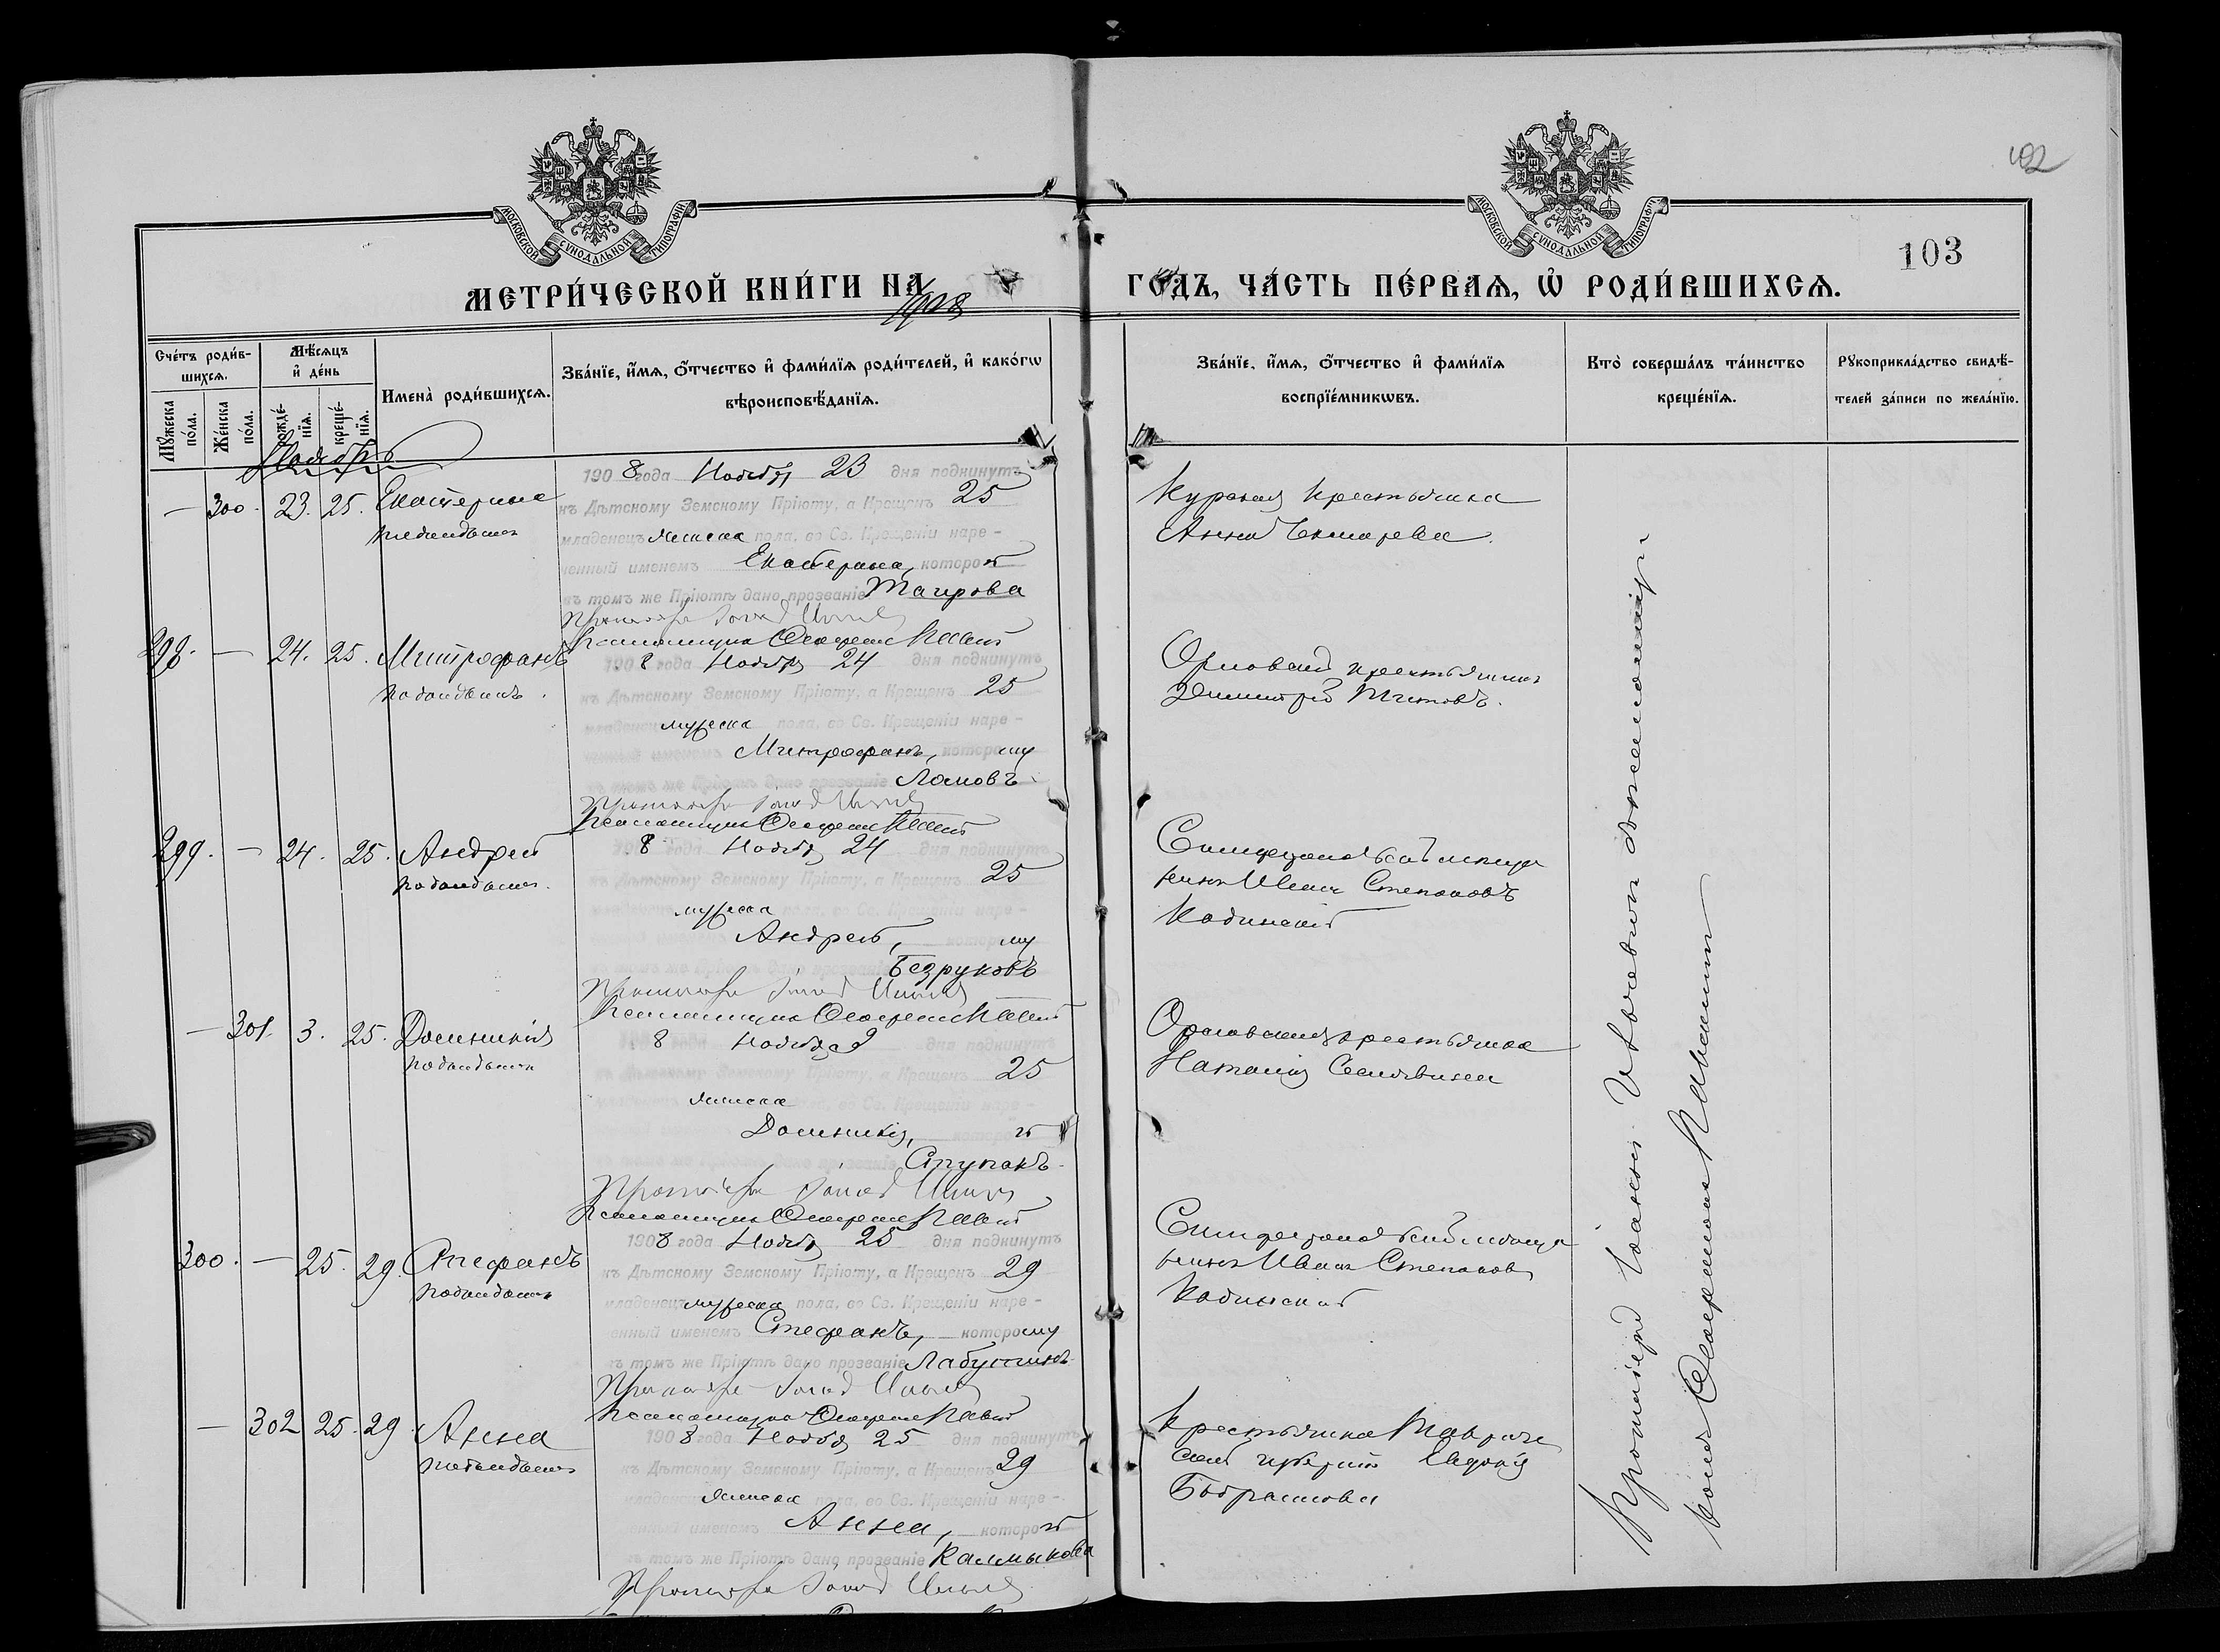 102
103
МОСКОВСКОЙ СѴНОДАЛЬНОЙ ТИПОГРАФІИ
МОСКОВСКОЙ СѴНОДАЛЬНОЙ ТИПОГРАФІИ
МЕТРИ́ЧЕСКОЙ КНИ́ГИ НА 1908 ГО́ДЪ, ЧА́СТЬ ПЕ́РВАѦ, Ѡ҆ РОДИ́ВШИХСѦ.
Сче́тъ роди́вшихсѧ.
Мꙋ́жеска по́ла.
Же́нска по́ла.
Мѣ́сѧцъ и҆ де́нь
рожде́нїѧ.
креще́нїѧ.
Имена̀ роди́вшихсѧ.
Зва́нїе, и҆́мѧ, ѻ҆́тчество и҆ фами́лїѧ роди́телей, и҆ како́гѡ
вѣроисповѣ́данїѧ.
Зва́нїе, и҆́мѧ, ѻ҆́тчество и҆ фами́лїѧ
воспрїе́мникѡвъ.
Кто̀ соверша́лъ та́инство
креще́нїѧ.
Рꙋкоприкла́дство свидѣ́-
телей за́писи по жела́нїю.
Ноябрь
— 300. 23. 25. Екатерина
подкидышъ
1908 года Ноября 23 дня подкинутъ
къ Дѣтскому Земскому Пріюту, а Крещенъ 25
младенецъ женска пола, во Св. Крещеніи наре-
ченный именемъ Екатерина, которой
въ томъ же Пріютѣ дано прозваніе Тагирова
Курская крестьянка
Анна
298. — 24. 25. Митрофанъ
подкидышъ.
1908 года Ноября 24 дня подкинутъ
къ Дѣтскому Земскому Пріюту, а Крещенъ 25
младенецъ мужеска пола, во Св. Крещеніи наре-
ченный именемъ Митрофанъ, которому
въ томъ же Пріютѣ дано прозваніе Ламовъ
Орловскій крестьянинъ
Димитрій Титовъ.
299. — 24. 25. Андрей
подкидышъ.
8 года Ноября 24 дня подкинутъ
къ Дѣтскому Земскому Пріюту, а Крещенъ 25
мужеска пола, во Св. Крещеніи наре-
Андрей, которому
въ томъ же Пріютѣ дано прозваніе Безруковъ
Симферопольскій мѣща
нинъ Иванъ Степановъ
Кодинскій
— 301. 3. 25. Домникія
подкидышъ
8 года Ноября 3 дня подкинутъ
къ Дѣтскому Земскому Пріюту, а Крещенъ 25
женска пола, во Св. Крещеніи наре-
Домникія, которой
Ступакъ
Орловская крестьянка
Наталія
300. — 25. 29. Стефанъ
подкидышъ
1908 года Ноября 25 дня подкинутъ
къ Дѣтскому Земскому Пріюту, а Крещенъ 29
младенецъ мужеска пола, во Св. Крещеніи наре-
ченный именемъ Стефанъ, которому
въ томъ же Пріютѣ дано прозваніе
Симферопольскій мѣща
нинъ Иванъ Степановъ
Кодинскій
— 302 25. 29 Анна
подкидышъ
1908 года Ноября 25 дня подкинутъ
къ Дѣтскому Земскому Пріюту, а Крещенъ 29
младенецъ женска пола, во Св. Крещеніи наре-
ченный именемъ Анна, которой
въ томъ же Пріютѣ дано прозваніе Калмыкова
Крестьянка Тавриче
ской губерніи Евдокія
Протоіерей Іоаннъ